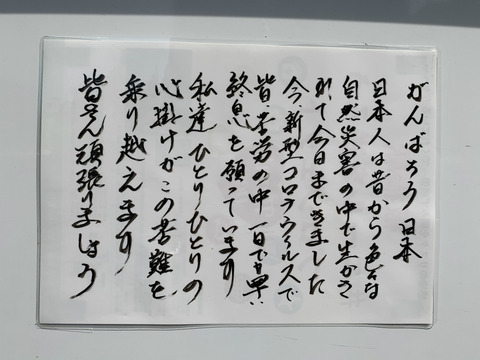 がんばろう日本
日本人は昔から色々な
自然災害の中で生かさ
れて今日まできました
今、新型コロナウィルスで
皆、苦労の中一日でも早い
終息を願っています
私達ひとりひとりの
心掛けがこの苦難を
乗り越えます
皆さん頑張りましょう